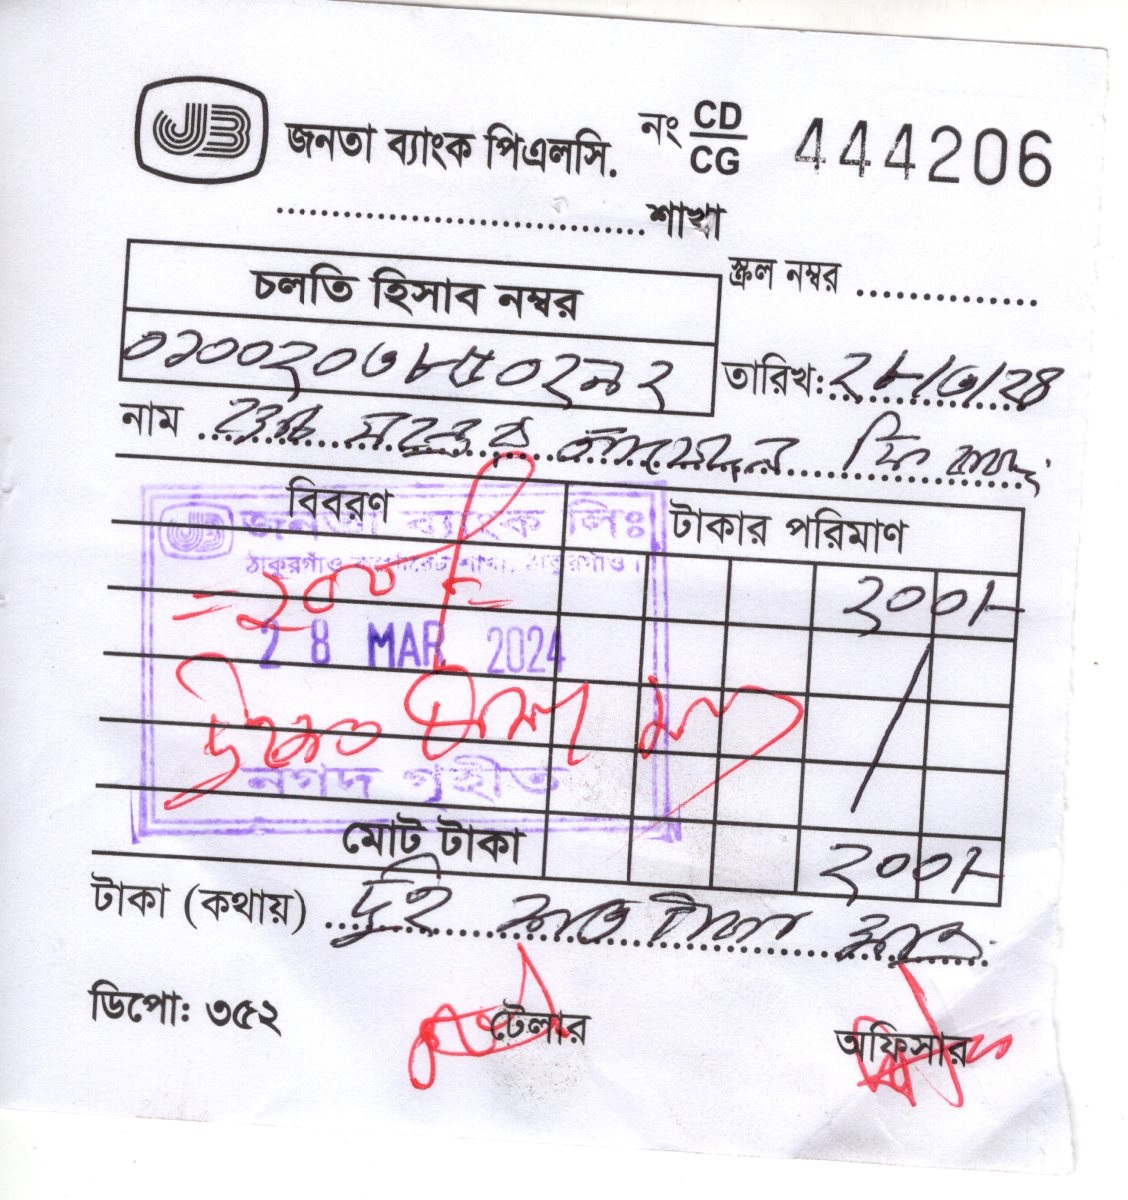 JB জনতা ব্যাংক পিএলসি. নং CD/CG 444206
.................................... শাখা
স্ক্রল নম্বর ..................
চলতি হিসাব নম্বর
০১০০২০৩৮৫০২৯২
তারিখ: ২৮/৩/২৪
নাম
বিবরণ টাকার পরিমাণ
জনতা ব্যাংক লিঃ
ঠাকুরগাঁও কর্পোরেট শাখা, ঠাকুরগাঁও।
২০০/-
= ২০০/- =
28 MAR 2024
নগদ গৃহীত
মোট টাকা ২০০/-
টাকা (কথায়) দুই শত টাকা মাত্র
ডিপো: ৩৫২ টেলার অফিসার